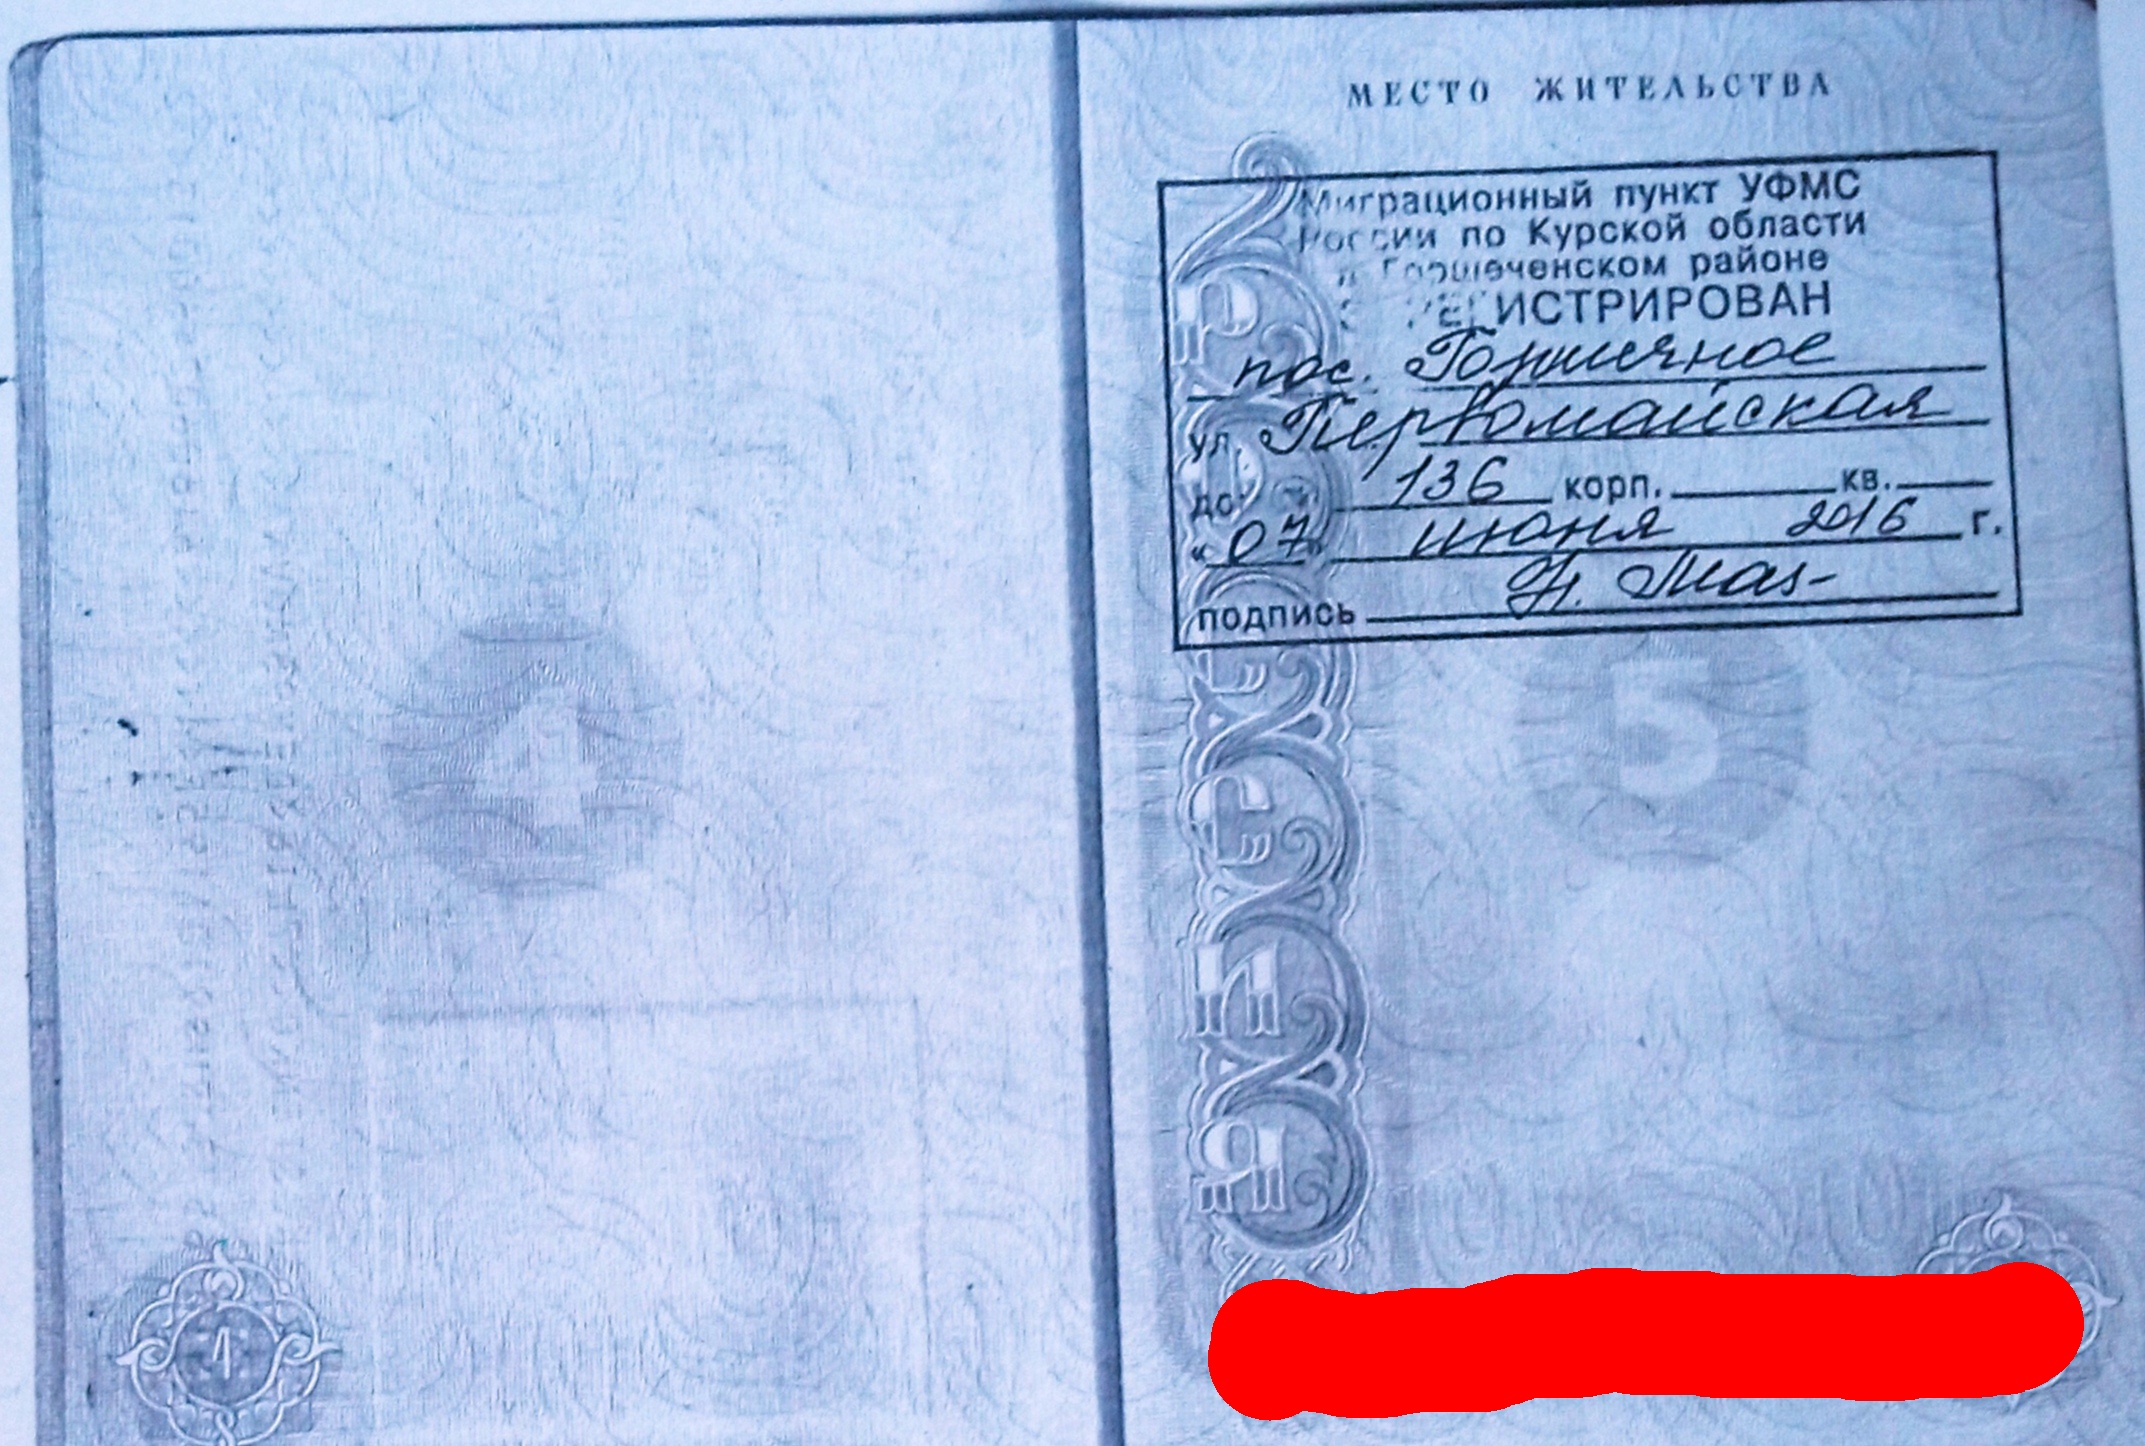 МЕСТО ЖИТЕЛЬСТВА
Миграционный пункт УФМС
России по Курской области
в Горшеченском районе
ЗАРЕГИСТРИРОВАН
пос. Горшечное
ул. Первомайская
дом 136 корп. кв.
«07» июня 2016 г.
подпись
4
5
РОССИЯ
4